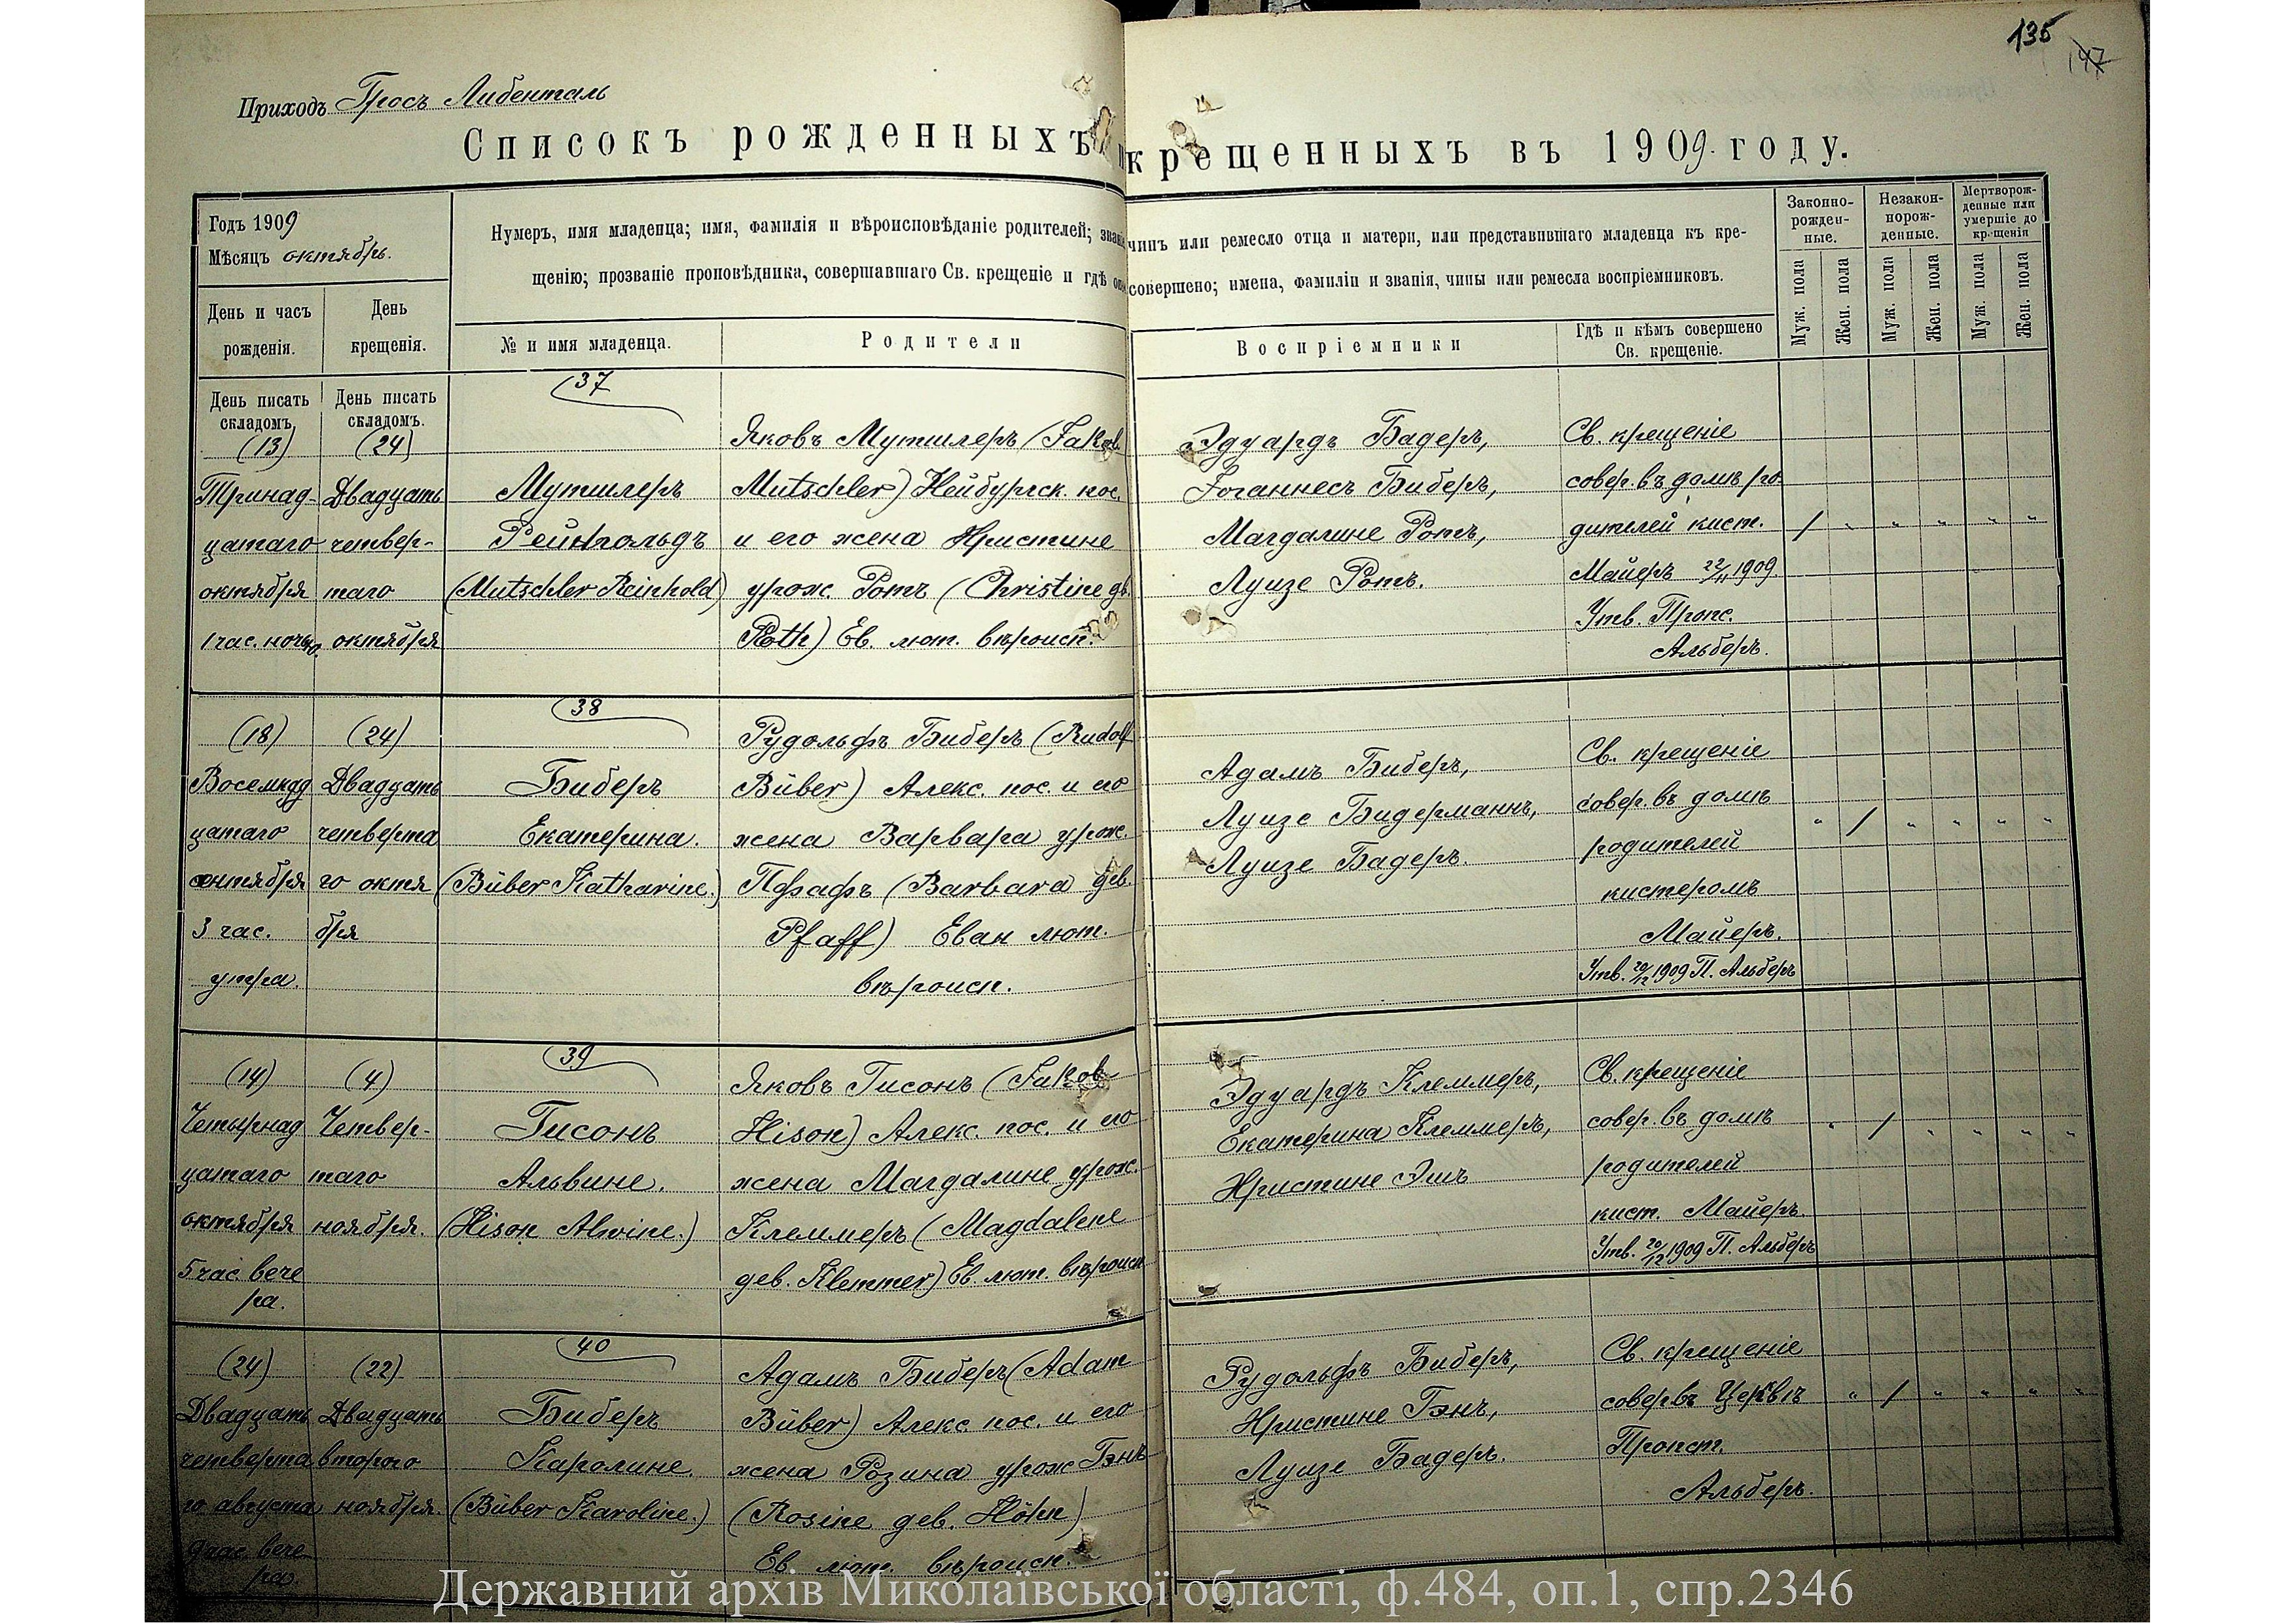 135
147
Приходъ Гросъ Либенталь
Списокъ рожденныхъ и крещенныхъ въ 1909 году.
Годъ 1909
Мѣсяцъ октябрь.
День и часъ рожденія.
День крещенія.
Нумеръ, имя младенца; имя, фамилія и вѣроисповѣданіе родителей; званіе чинъ или ремесло отца и матери, или представившаго младенца къ кре-
щенію; прозваніе проповѣдника, совершавшаго Св. крещеніе и гдѣ оное совершено; имена, фамиліи и званія, чины или ремесла воспріемниковъ.
№ и имя младенца.
Родители
Воспріемники
Гдѣ и кѣмъ совершено
Св. крещеніе.
Законно-
рожден-
ные.
Незакон-
норож-
денные.
Мертворож-
денные или
умершіе до
крещенія
Муж. пола
Жен. пола
Муж. пола
Жен. пола
Муж. пола
Жен. пола
День писать
складомъ.
День писать
складомъ.
(13)
Тринад-
цатаго
октября
1 час. ночи.
(24)
Двадцать
четвер-
таго
октября
37
Мутшлеръ
Рейнгольдъ
(Mutschler Reinhold)
Яковъ Мутшлеръ (Jakob
Mutschler) Нейбургск. пос.
и его жена Христине
урож. Ротъ (Christine дѣв.
Roth) Ев. лют. вѣроисп.
Эдуардъ Бадеръ,
Іоганнесъ Биберъ,
Магдалине Ротъ,
Луизе Ротъ.
Св. крещеніе
совер. въ домѣ ро-
дителей кист.
Майеръ 22/11 1909.
Утв. Пропс.
Альберъ.
/ " " " " "
(18)
Восемнад
цатаго
сентября
3 час.
утра.
(24)
Двадцать
четверта
го октя
бря
38
Биберъ
Екатерина.
(Büber Katharine.)
Рудольфъ Биберъ (Rudolf
Büber) Алекс. пос. и его
жена Варвара урож.
Пфафъ (Barbara дев.
Pfaff) Еван лют.
вѣроисп.
Адамъ Биберъ,
Луизе Бидерманнъ,
Луизе Бадеръ.
Св. крещеніе
совер. въ домѣ
родителей
кистеромъ
Майеръ.
Утв. 20/12 1909 П. Альберъ
" / " " " "
(14)
Четырнад
цатаго
октября
5 час. вече
ра.
(4)
Четвер-
таго
ноября.
39
Гисонъ
Альвине.
(Hison Alwine.)
Яковъ Гисонъ (Jakob
Hison) Алекс. пос. и его
жена Магдалине урож.
Клеммеръ (Magdalene
дев. Klemmer) Ев. лют. вѣроисп
Эдуардъ Клеммеръ,
Екатерина Клеммеръ,
Христине Эшъ
Св. крещеніе
совер. въ домѣ
родителей
кист. Майеръ.
Утв. 20/12 1909 П. Альберъ
" / " " " "
(24)
Двадцать
четверта
го августа
9 час. вече
ра.
(22)
Двадцать
второго
ноября.
40
Биберъ
Каролине.
(Büber Karoline.)
Адамъ Биберъ (Adam
Büber) Алекс. пос. и его
жена Розина урож Гэнъ
(Rosine дев. Höhn)
Ев. лют. вѣроисп.
Рудольфъ Биберъ,
Христине Гэнъ,
Луизе Бадеръ.
Св. крещеніе
совер въ Церквѣ
Пропст.
Альберъ.
" / " " " "
Державний архів Миколаївської області, ф.484, оп.1, спр.2346